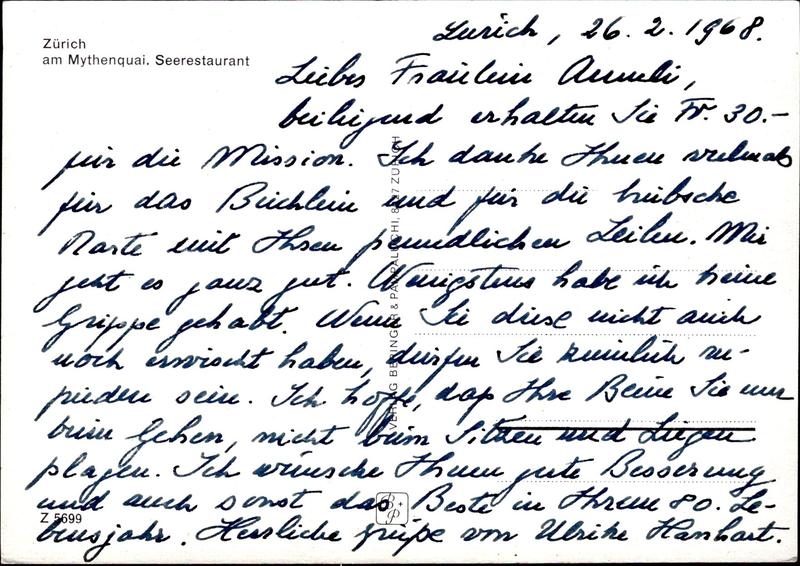 Zürich
am Mythenquai. Seerestaurant
Zürich, 26. 2. 1968.
Liebes Fräulein Anneli,
beiliegend erhalten Sie Fr. 30.–
für die Mission. Ich danke Ihnen vielmals
für das Büchlein und für die hübsche
Karte mit Ihren freundlichen Zeilen. Mir
geht es ganz gut. Wenigstens habe ich keine
Grippe gehabt. Wenn Sie diese nicht auch
noch erwischt haben, dürfen Sie ziemlich zu-
frieden sein. Ich hoffe, daß Ihre Beine Sie nur
beim Gehen, nicht beim Sitzen und Liegen
plagen. Ich wünsche Ihnen gute Besserung
und auch sonst das Beste in Ihrem 80. Le-
bensjahr. Herzliche Grüße von Ulrike Hanhart.
Z 5699
B + P
VERLAG BERINGER & PAMPALUCHI, 8047 ZÜRICH